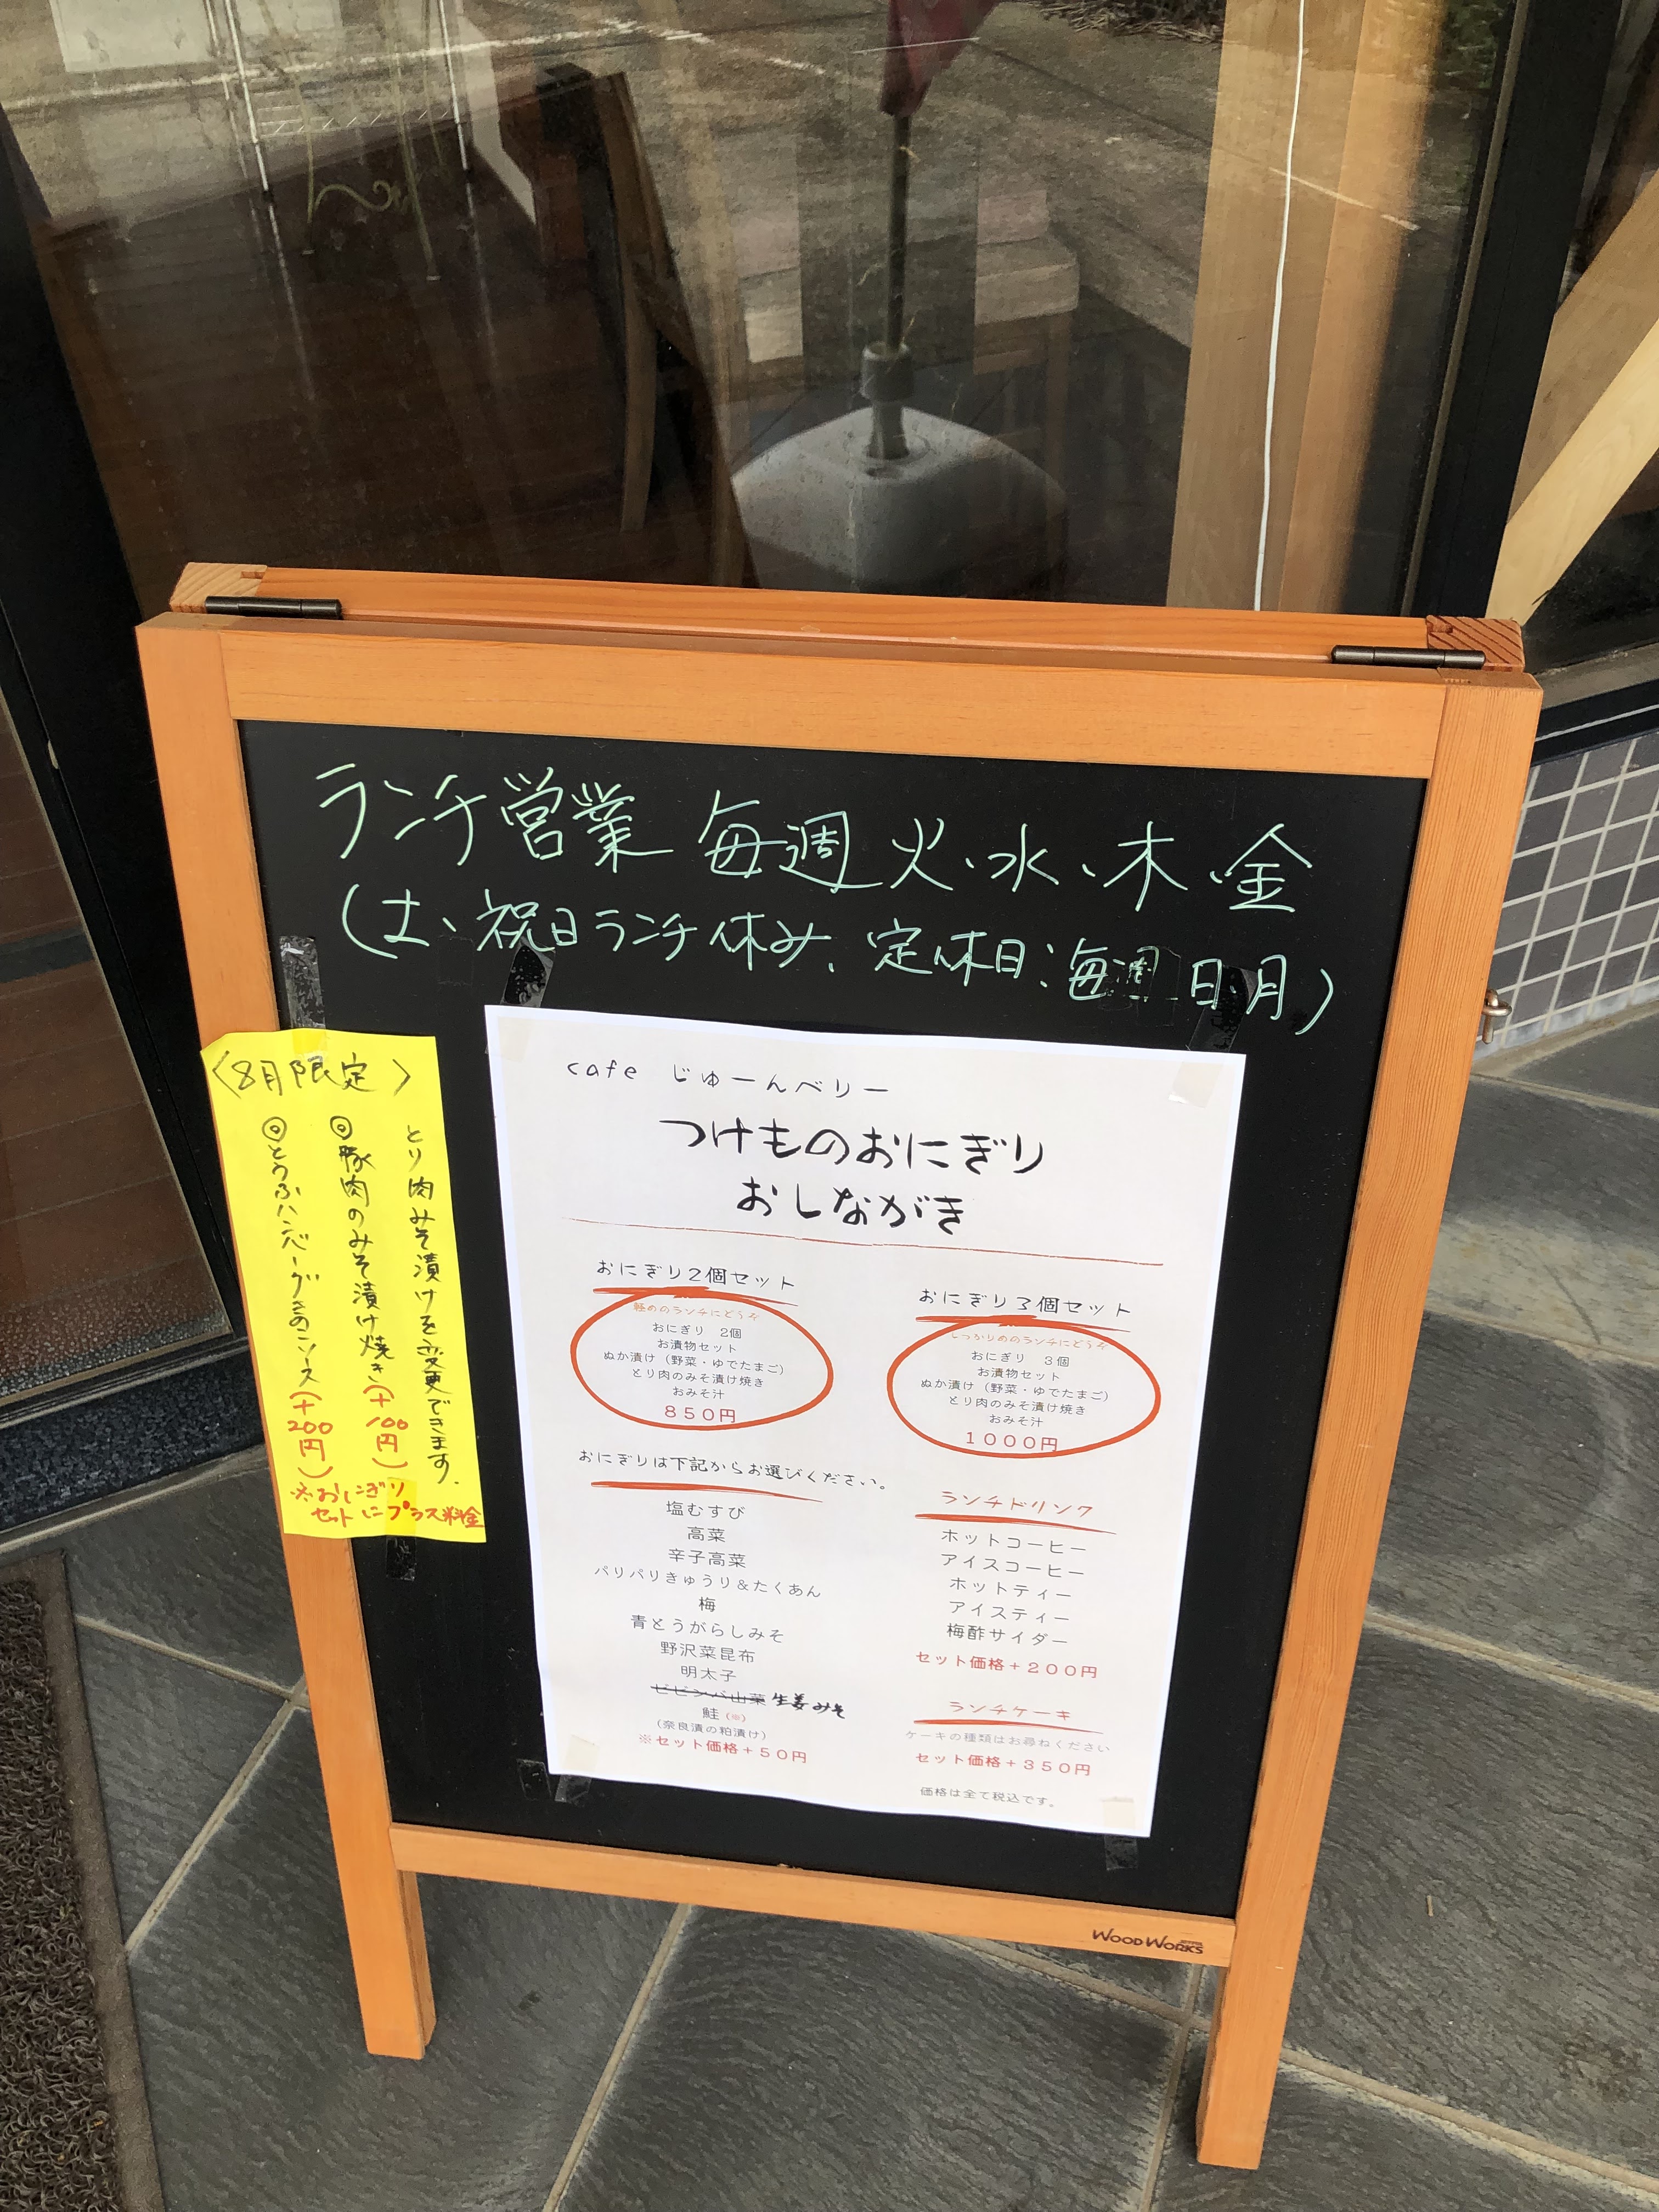 ランチ営業 毎週 火・水・木・金
(土、祝日ランチ休み、定休日:毎週 日・月)
〈8月限定〉
とり肉みそ漬けを変更できます。
◎豚肉のみそ漬け焼き(+100円)
◎とうふハンバーグきのこソース(+200円)
※おにぎり
セットにプラス料金
cafe じゅーんべりー
つけものおにぎり
おしながき
おにぎり2個セット
軽めのランチにどうぞ
おにぎり 2個
お漬物セット
ぬか漬け(野菜・ゆでたまご)
とり肉のみそ漬け焼き
おみそ汁
850円
おにぎり3個セット
しっかりめのランチにどうぞ
おにぎり 3個
お漬物セット
ぬか漬け(野菜・ゆでたまご)
とり肉のみそ漬け焼き
おみそ汁
1000円
おにぎりは下記からお選びください。
塩むすび
高菜
辛子高菜
パリパリきゅうり&たくあん
梅
青とうがらしみそ
野沢菜昆布
明太子
ビビンバ山菜 生姜みそ
鮭(※)
(奈良漬の粕漬け)
※セット価格+50円
ランチドリンク
ホットコーヒー
アイスコーヒー
ホットティー
アイスティー
梅酢サイダー
セット価格+200円
ランチケーキ
ケーキの種類はお尋ねください
セット価格+350円
価格は全て税込です。
WOODWORKS